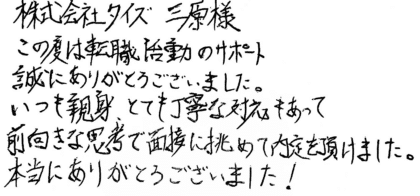 株式会社タイズ 三原様
この度は転職活動のサポート
誠にありがとうございました。
いつも親身、とても丁寧な対応もあって
前向きな思考で面接に挑めて内定を頂けました。
本当にありがとうございました！